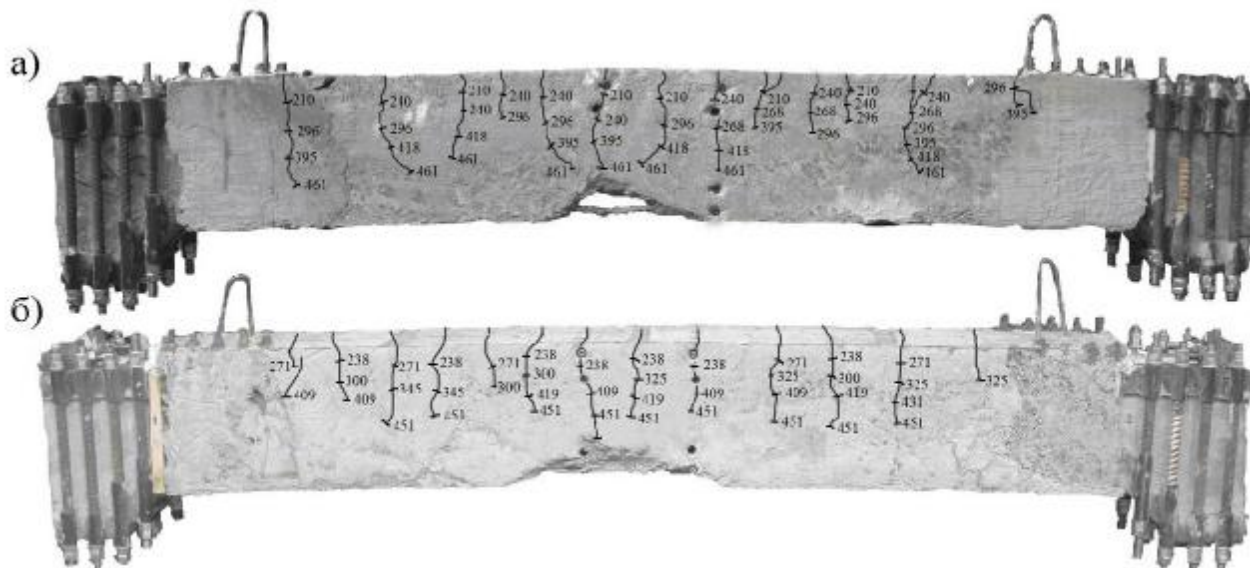 а)
210
296
395
461
240
296
418
461
210
240
418
461
240
296
240
296
395
461
210
240
395
461
210
296
418
461
240
268
418
461
210
268
395
240
268
296
210
240
296
240
268
296
395
418
461
296
395
б)
271
409
238
300
409
271
345
451
238
345
451
271
300
238
300
419
451
238
409
451
238
325
419
451
238
409
451
271
325
409
451
238
300
419
451
271
325
431
451
325